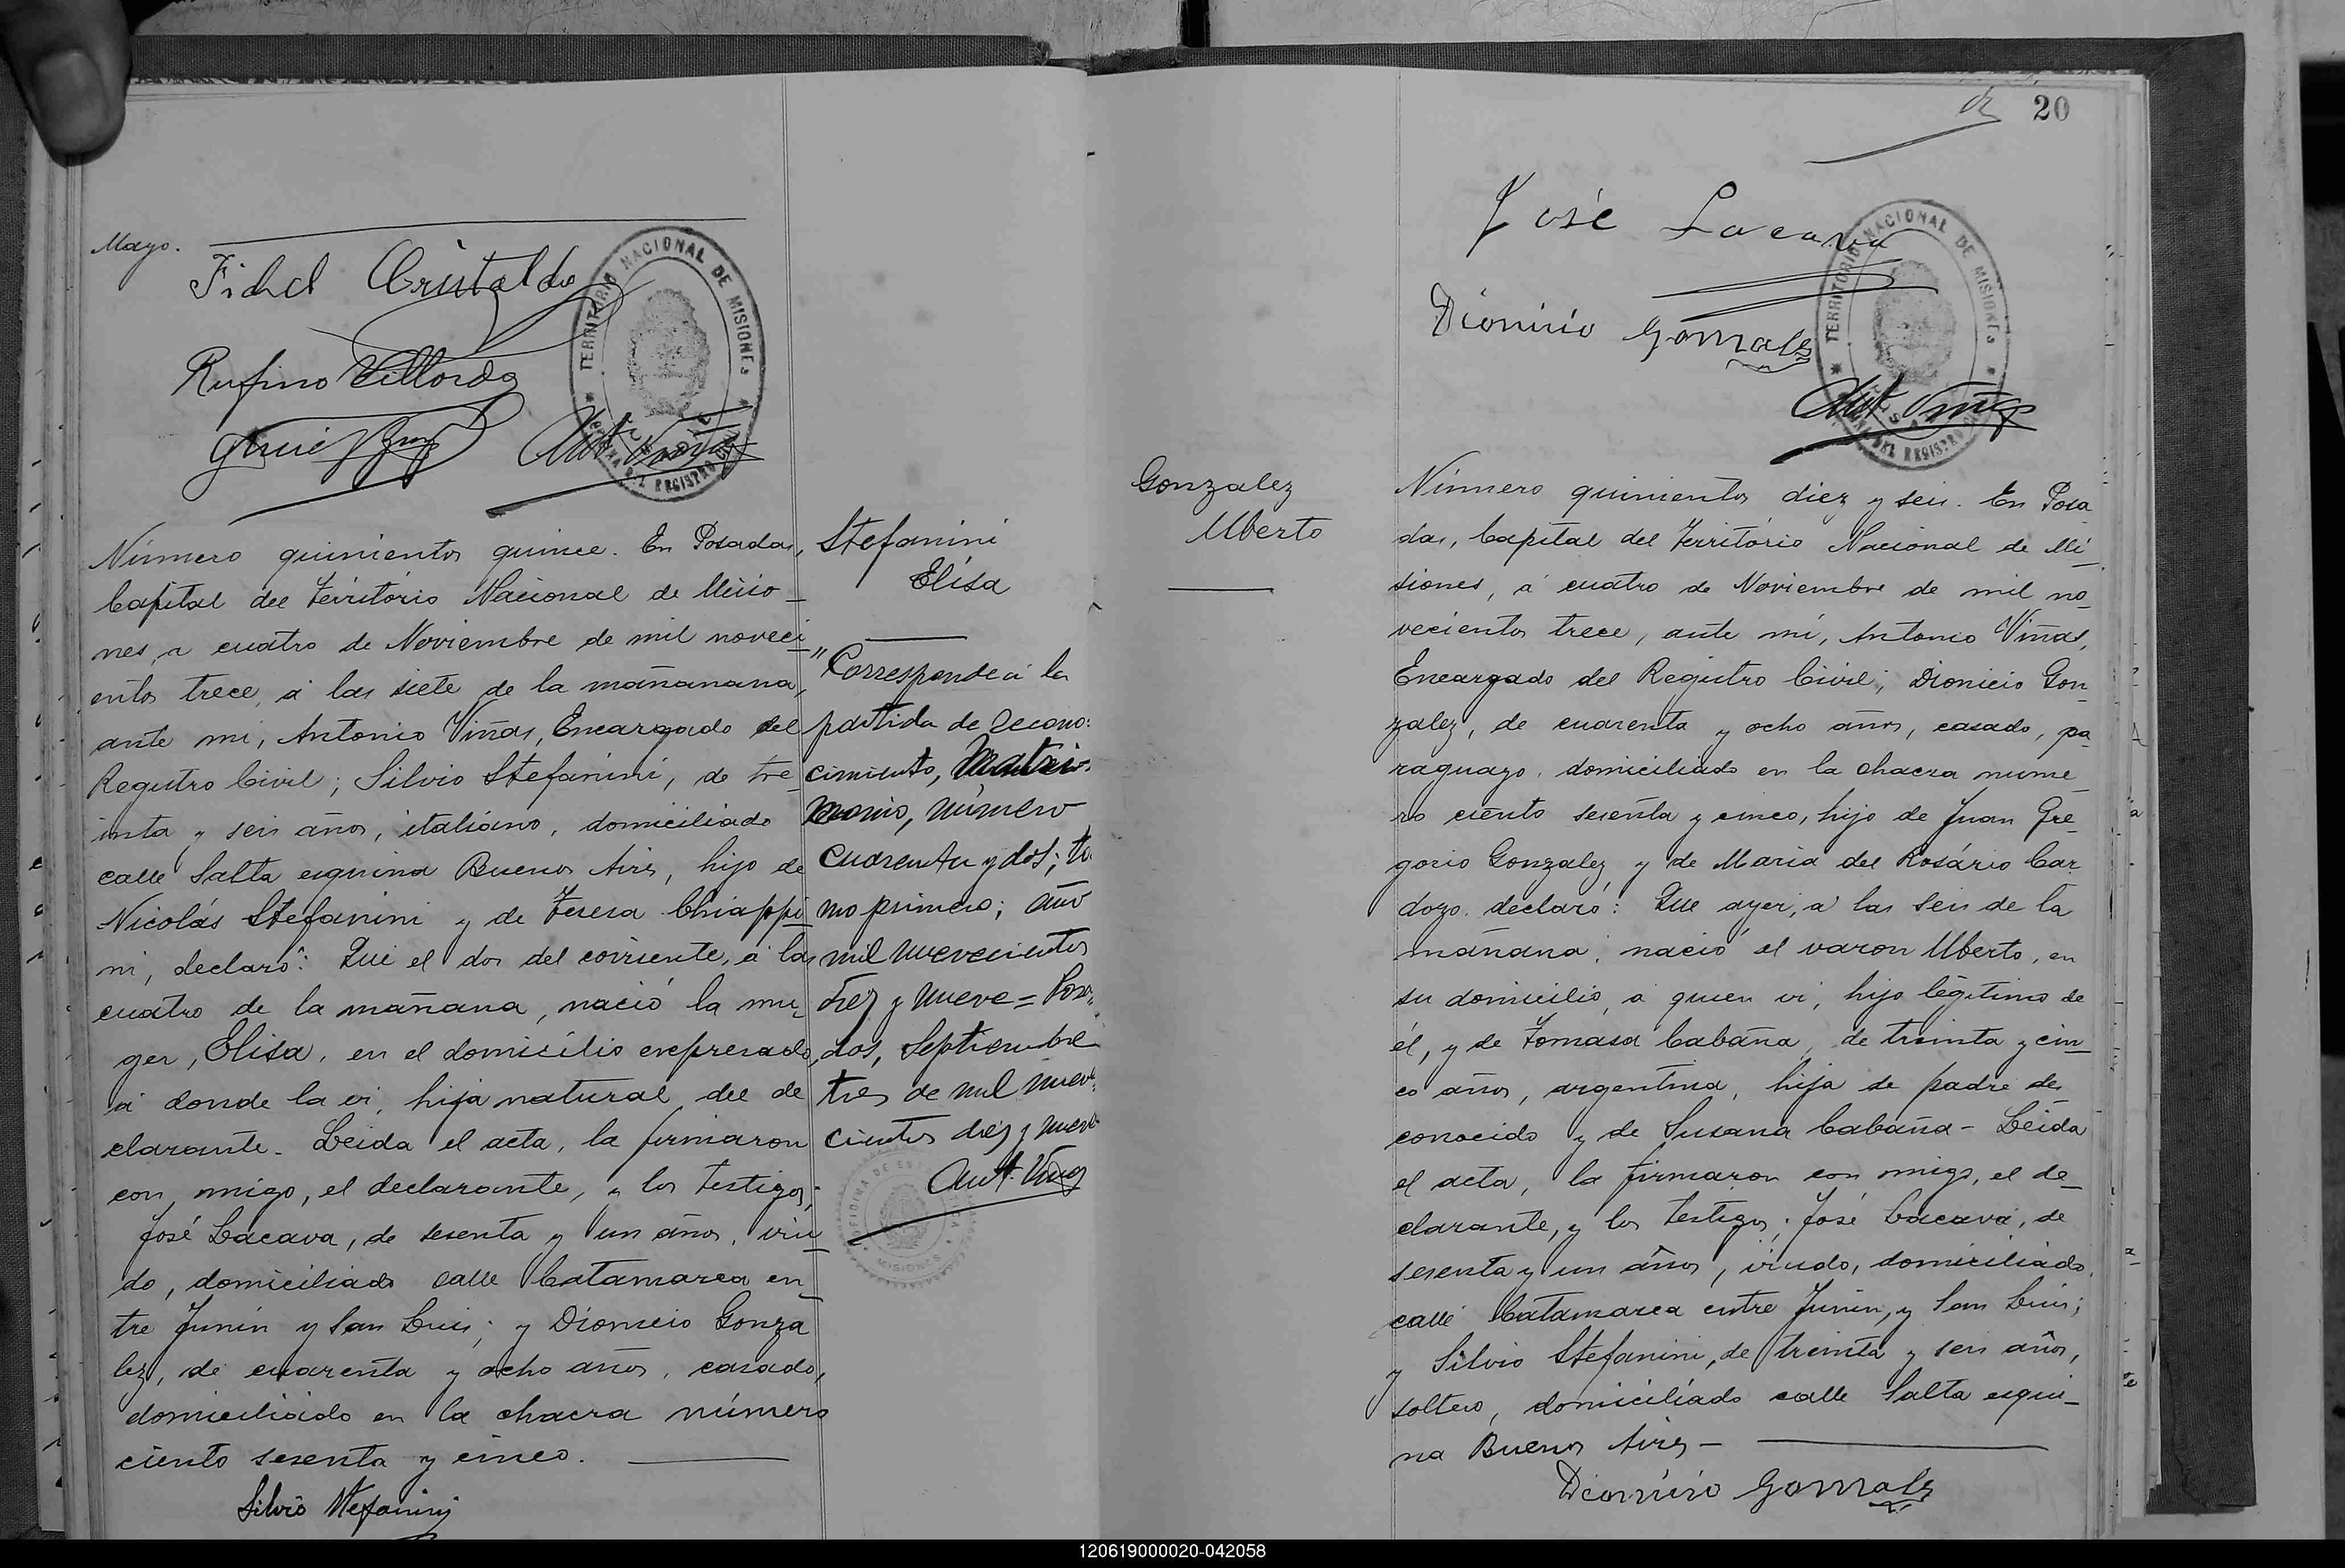 Mayo.
Fidel Cristaldo
Rufino Villorda
Ant Viñas
TERRITORIO NACIONAL DE MISIONES
Número quinientos quince. En Posadas,
Capital del Território Nacional de Misio_
nes, a cuatro de Noviembre de mil noveci_
entos trece, á las siete de la mañanana,
ante mi, Antonio Viñas, Encargado del
Registro Civil; Silvio Stefanini, de tre_
inta y seis años, italiano, domiciliado
calle Salta esquina Buenos Aires, hijo de
Nicolás Stefanini y de Teresa Chiappi_
ni, declaró: Que el dos del corriente, á las
cuatro de la mañana, nació la mu_
ger, Elisa, en el domicílio expresado,
á donde la vi, hija natural del de
clarante. Leida el acta, la firmaron
con migo, el declarante, y los testigos;
José Lacava, de sesenta y un años, viu_
do, domiciliado calle Catamarca en_
tre Junín y San Luis; y Dionicio Gonza
lez, de cuarenta y ocho años, casado,
domiciliado en la chacra número
ciento sesenta y cinco.
Silvio Stefanini
Stefanini
Elisa
"Corresponde á la
partida de recono:
cimiento, Matri:
monio, número
cuarenta y dos; to
mo primero; año
mil nuevecientos
diez y nueve = Posa:
das, Septiembre
tres de mil nueve:
cientos diez y nueve
Ant. Viñas
MISIONES
20
José Lacava
Dionicio Gonzalez
TERRITORIO NACIONAL DE MISIONES
Ant Viñas
Gonzalez
Uberto
Número quinientos diez y seis. En Posa
das, Capital del Território Nacional de Mi_
siones, á cuatro de Noviembre de mil no_
vecientos trece, ante mí, Antonio Viñas,
Encargado del Registro Civil; Dionicio Gon_
zalez, de cuarenta y ocho años, casado, pa_
raguayo, domiciliado en la chacra nume_
ro ciento sesenta y cinco, hijo de Juan Gre_
gorio Gonzalez y de Maria del Rosário Car_
dozo, declaró: Que ayer, a las seis de la
mañana, nació el varon Uberto, en
su domicilio, a quien vi, hijo legitimo de
él, y de Tomasa Cabaña, de treinta y cin_
co años, argentina, hija de padre des
conocido y de Susana Cabaña - Leida
el acta, la firmaron con migo, el de_
clarante, y los testigos; José Lacava, de
sesenta y un años, viudo, domiciliado
calle Catamarca entre Junin, y San Luis;
y Silvio Stefanini, de treinta y seis años,
soltero, domiciliado calle Salta esqui_
na Buenos Aires -
Dionicio Gonzalez
120619000020-042058